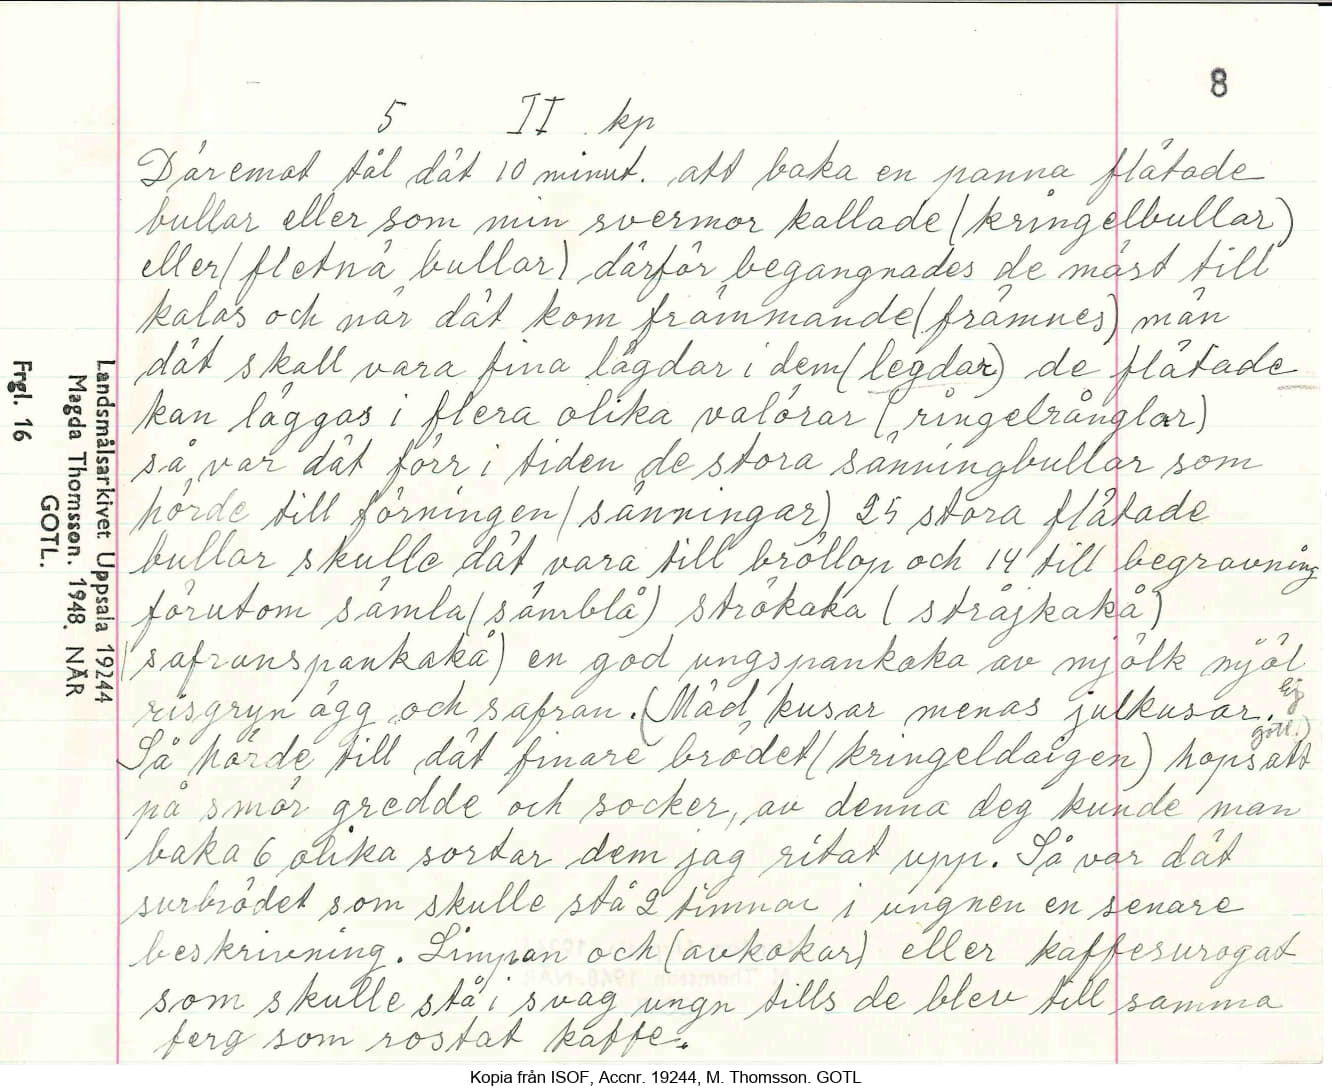 8
5 II kp
Däremot tål dät 10 minut. att baka en panna flätade
bullar eller som min svermor kallade (kringelbullar)
eller (fletnä bullar) därför begangnades de mäst till
kalas och när dät kom främmande (främnes) män
dät skall vara fina lägdar i dem (legdar) de flätade
kan läggas i flera olika valörar (ringelränglar)
så var dät förr i tiden de stora sänningbullar som
hörde till förningen (sänningar) 25 stora flätade
bullar skulle dät vara till bröllop och 14 till begravning
förutom sämla (sämblå) strökaka (sträjkakå)
(safranspankakå) en god ungspankaka av mjölk mjöl
risgryn ägg och safran. (Mäd kusar menas julkusar.
gotl.)
Så hörde till dät finare brödet (kringeldaigen) hopsatt
på smör gredde och socker, av denna deg kunde man
baka 6 olika sortar dem jag ritat upp. Så var dät
surbrödet som skulle stå 2 timmar i ungnen en senare
beskrivning. Limpan och (avkokar) eller kaffesurogat
som skulle stå i svag ungn tills de blev till samma
ferg som rostat kaffe.
Landsmålsarkivet Uppsala 19244
Magda Thomsson. 1948. NÄR
GOTL.
Frgl. 16
Kopia från ISOF, Accnr. 19244, M. Thomsson. GOTL